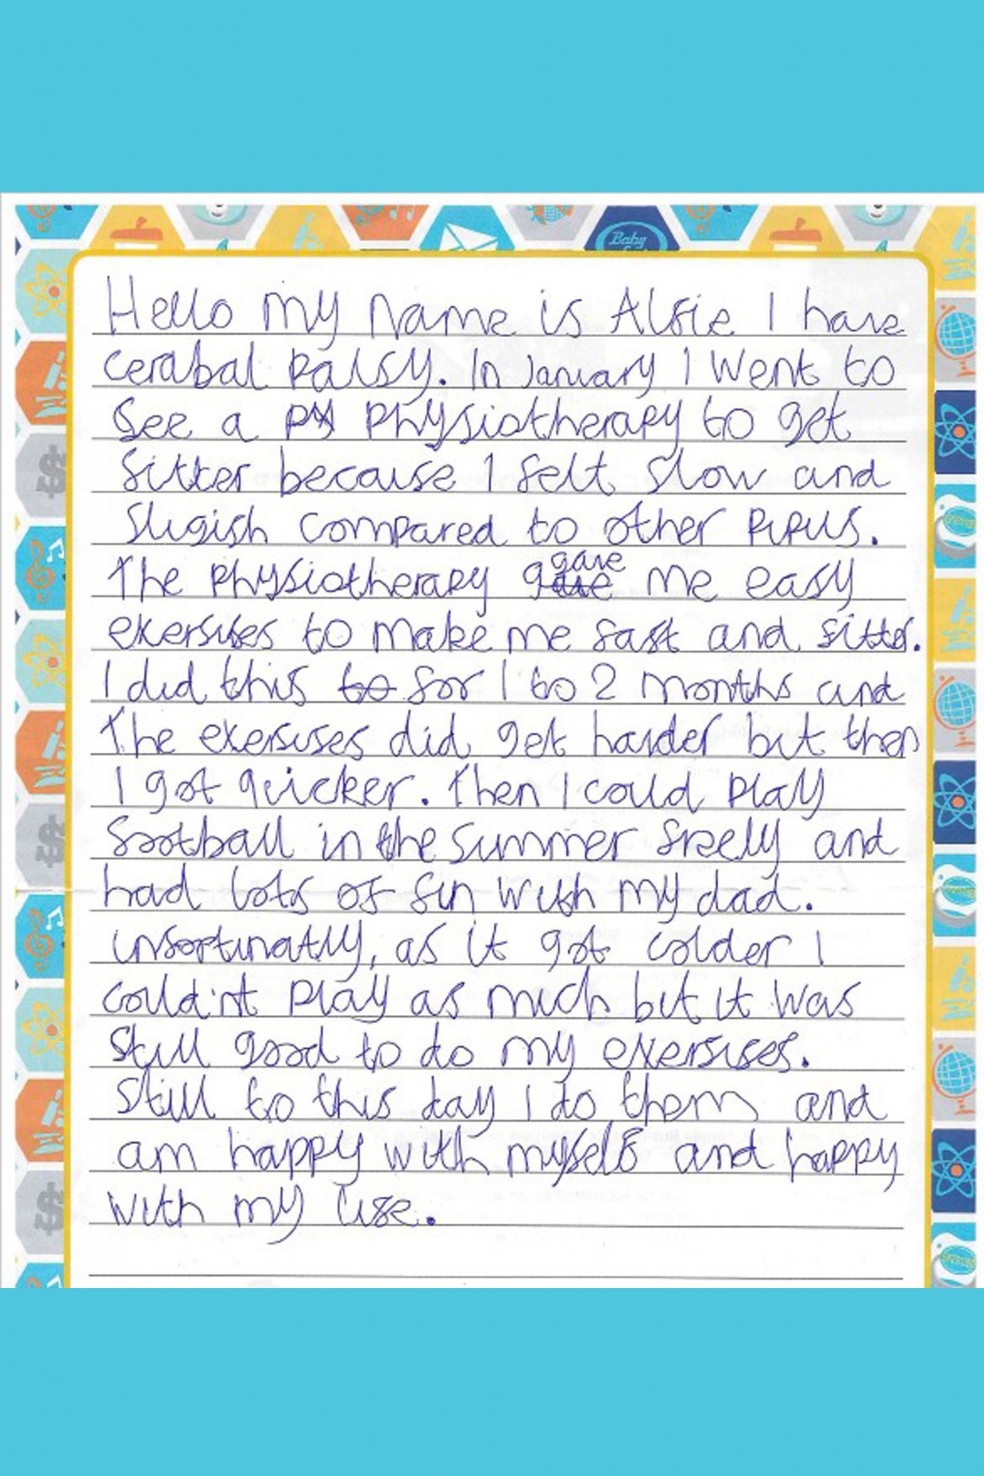 Baby
Hello my name is Alfie I have
cerabal palsy. In January I went to
see a py physiotherapy to get
fitter because I felt slow and
slugish compared to other pupils.
The physiotherapy gave gave me easy
exersises to make me fast and fitter.
I did this to for 1 to 2 months and
the exersises did get harder but then
I got quicker. Then I could play
football in the summer freely and
had lots of fun with my dad.
unfortunatly, as it got colder I
could'nt play as much but it was
still good to do my exersises.
Still to this day I do them and
am happy with myself and happy
with my life.